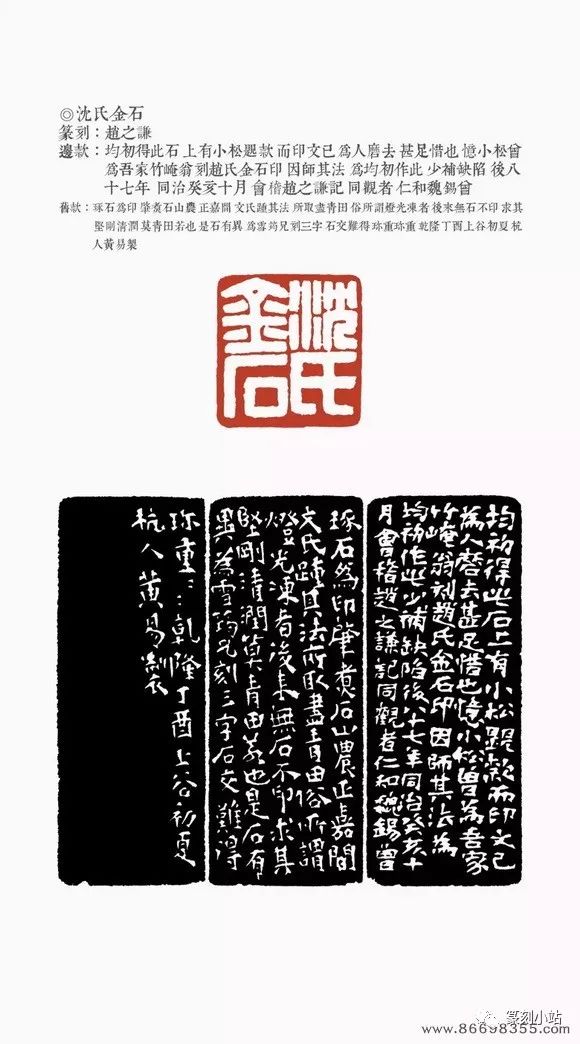 ◎沈氏金石
篆刻：趙之謙
邊款：均初得此石 上有小松題款 而印文已 爲人磨去 甚足惜也 憶小松曾
爲吾家竹崦翁刻趙氏金石印 因師其法 爲均初作此 少補缺陷 後八
十七年 同治癸亥十月 會稽趙之謙記 同觀者 仁和魏錫曾
舊款：琢石爲印 肇煮石山農 正嘉間 文氏踵其法 所取盡青田 俗所謂燈光凍者 後來無石不印 求其
堅剛清潤 莫青田若也 是石有異 爲雪筠兄刻三字 石交難得 珎重珎重 乾隆丁酉上谷初夏 杭
人黃易製
沈氏
金石
均初得此石上有小松題款而印文已
爲人磨去甚足惜也憶小松曾爲吾家
竹崦翁刻趙氏金石印因師其法爲
均初作此少補缺陷後八十七年同治癸亥十
月會稽趙之謙記同觀者仁和魏錫曾
琢石爲印肇煮石山農正嘉間
文氏踵其法所取盡青田俗所謂
燈光凍者後來無石不印求其
堅剛清潤莫青田若也是石有
異爲雪筠兄刻三字石交難得
珎重〻〻乾隆丁酉上谷初夏
杭人黃易製
篆刻小站
www.86698355.com